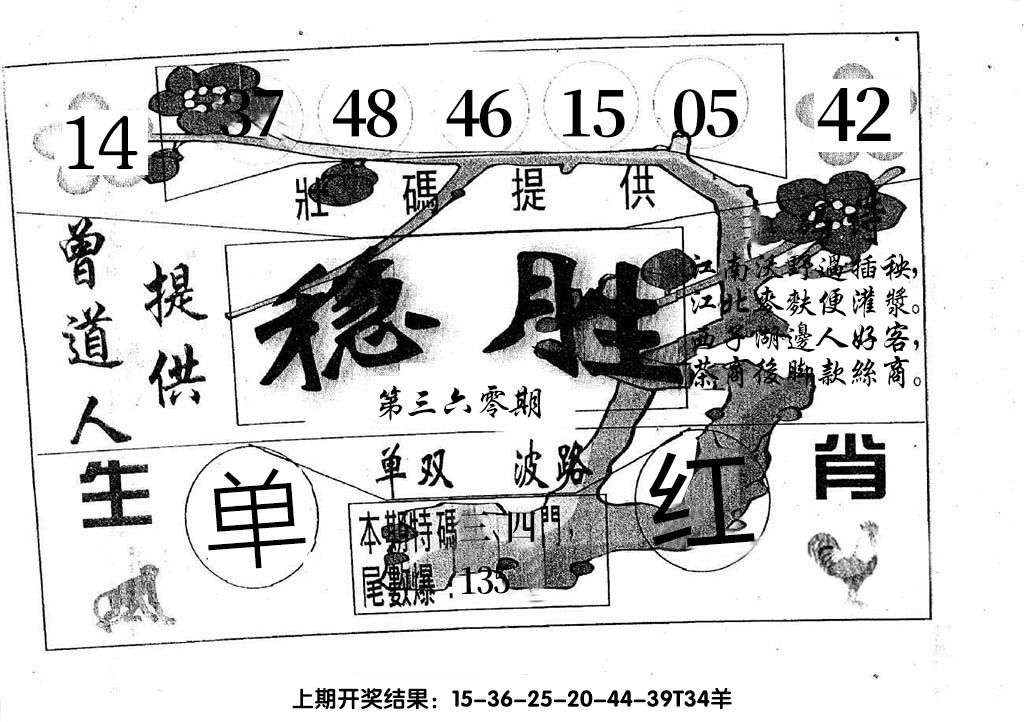 14 37 48 46 15 05 42
壯碼提供
特
曾道人
提供
稳胜
第三六零期
江南沃野過插秧，
江北麥麩便灌漿。
西子湖邊人好客，
茶商後脚款絲商。
单双 波路
生肖
单
红
本期特碼三、四門，
尾數爆：135
上期开奖结果：15-36-25-20-44-39T34羊